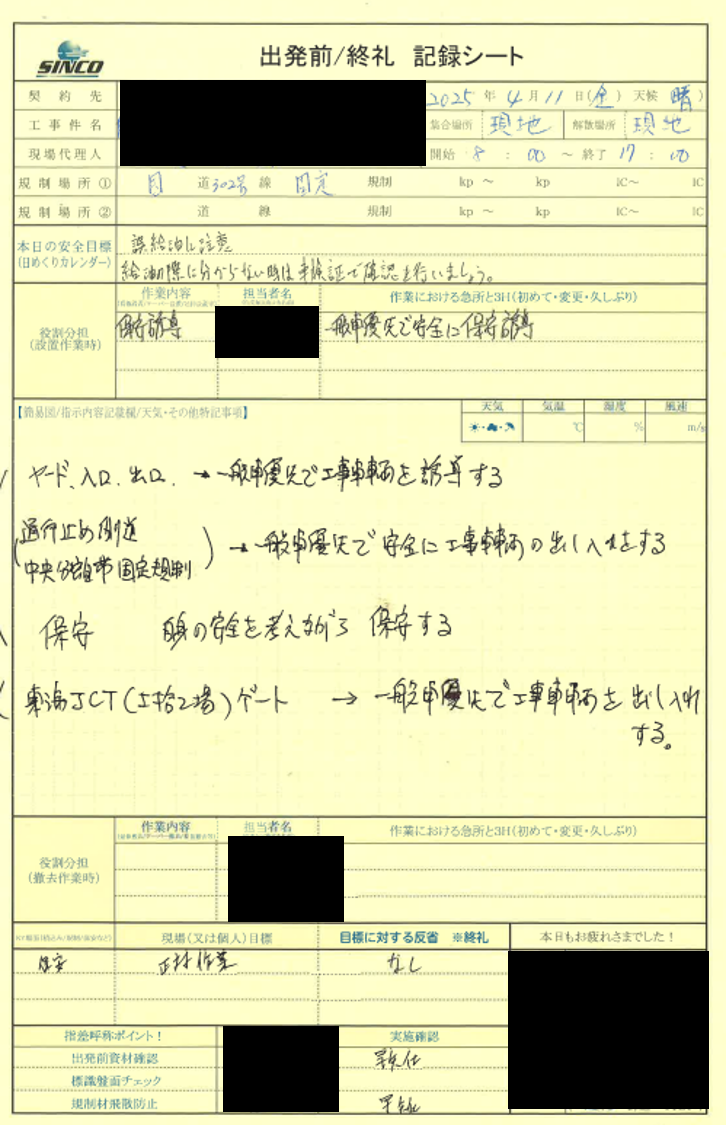 SINCO
出発前/終礼 記録シート
契約先
2025 年 4 月 11 日(金) 天候 晴
工事件名 集合場所 現地 解散場所 現地
現場代理人 開始 8 : 00 ～ 終了 17 : 00
規制場所① 国 道 302号 線 固定 規制 kp ～ kp IC～ IC
規制場所② 道 線 規制 kp ～ kp IC～ IC
本日の安全目標 誤給油に注意
(日めくりカレンダー) 給油の際に分からない時は車検証で確認を行いましょう。
作業内容 担当者名 作業における急所と3H(初めて・変更・久しぶり)
役割分担
(設置作業時)
保安誘導 一般車優先で安全に保安誘導
【簡易図/指示内容記載欄/天気・その他特記事項】
天気 気温 湿度 風速
℃ % m/s
ヤード、入口、出口、→一般車優先で工事車輌を誘導する
通行止め側道
中央分離帯固定規制
→一般車優先で安全に工事車輌の出し入れをする
保安 自身の安全を考えながら 保安する
東海JCT(工場)ゲート → 一般車優先で工事車輌を出し入れ
する。
作業内容 担当者名 作業における急所と3H(初めて・変更・久しぶり)
役割分担
(撤去作業時)
現場(又は個人)目標 目標に対する反省 ※終礼 本日もお疲れさまでした!
保安 なし
指差呼称ポイント! 実施確認
出発前資材確認
標識盤面チェック
規制材飛散防止